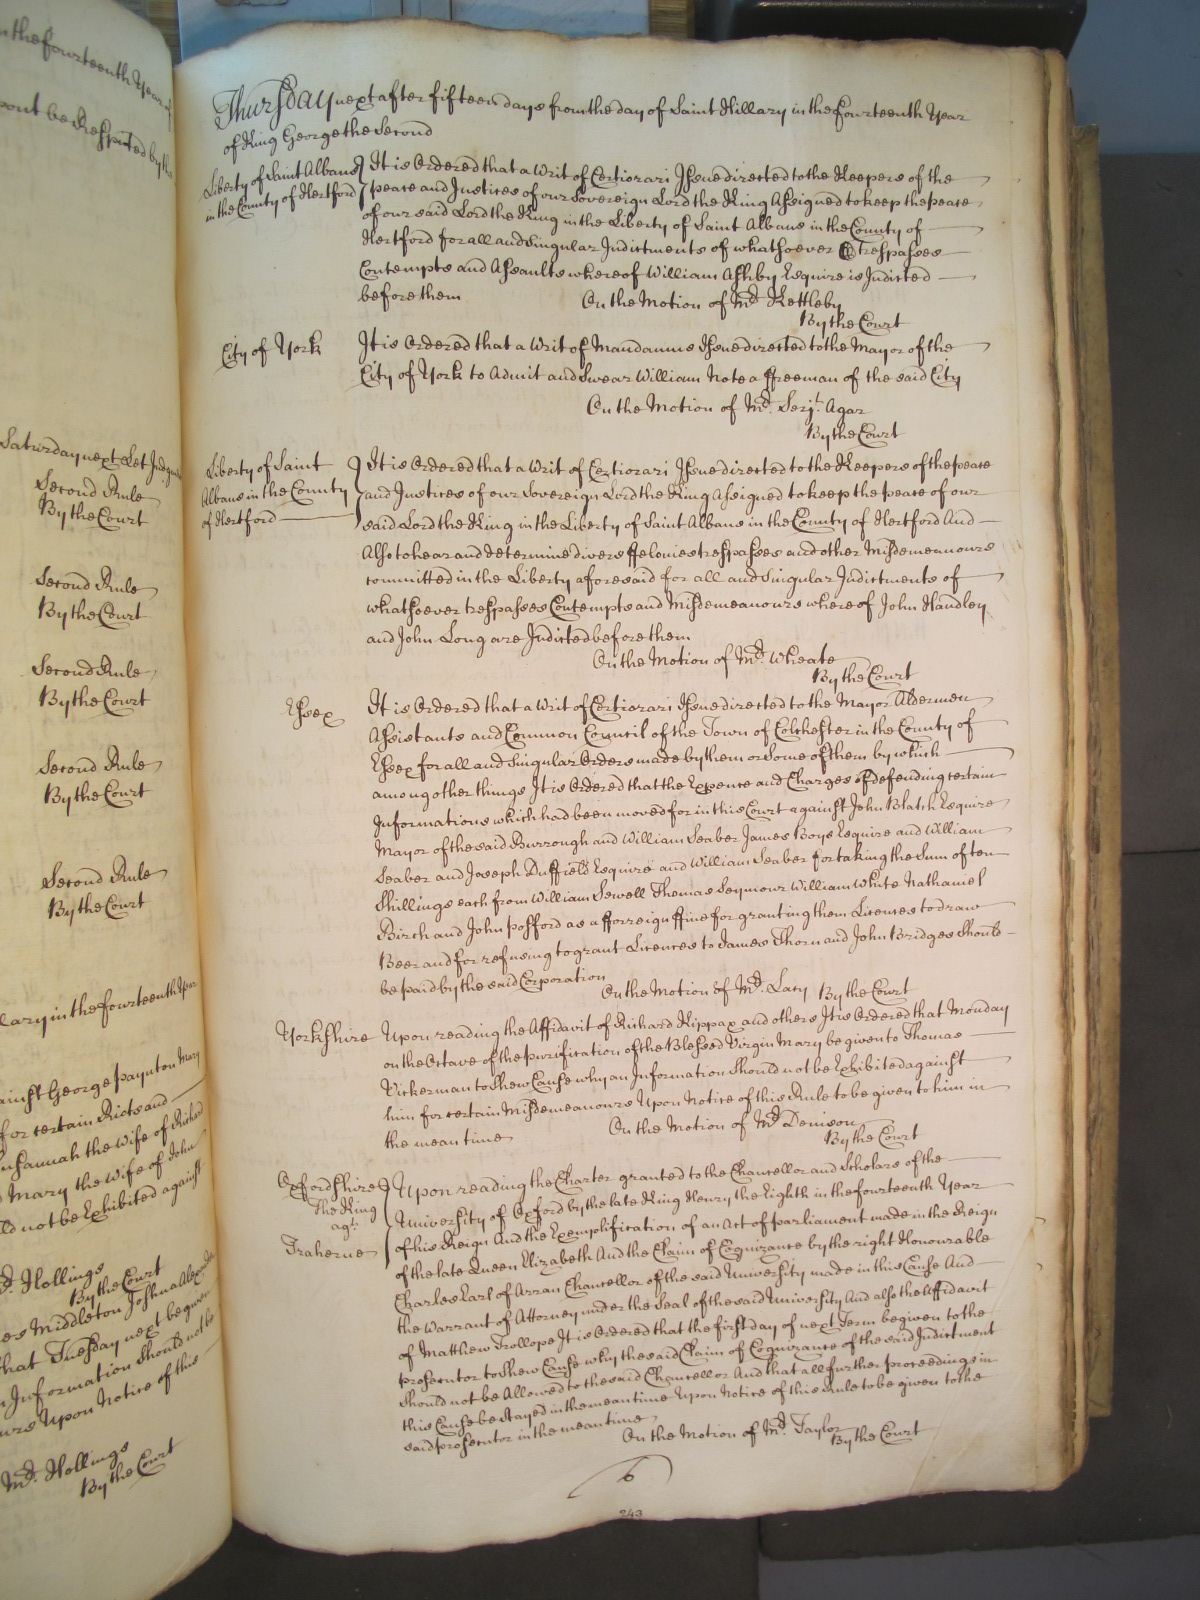 n the fourteenth Year of
pont be Respited by the
Saturday next Let Judgm
Second Rule
By the Court
Second Rule
By the Court
Second Rule
By the Court
Second Rule
By the Court
Second Rule
By the Court
llary in the fourteenth Year
ainst George Paynton Mary
for certain Riots and
Susannah the wife of Richard
Mary the wife of John
ld not be Exhibited against
Mr. Hollings
By the Court
es Middleton Joshua Alexander
that Tuesday next be given
n Information should not be
urs Upon Notice of this
Mr. Hollings
By the Court
Thursday next after fifteen days from the day of Saint Hillary in the fourteenth Year
of King George the Second
Liberty of Saint Albans
in the County of Hertford
It is Ordered that a Writ of Certiorari Issue directed to the Keepers of the
peace and Justices of our Sovereign Lord the King Assigned to keep the peace
of our said Lord the King in the Liberty of Saint Albans in the County of
Hertford for all and Singular Indictments of whatsoever trespasses
Contempts and Assaults whereof William Ashby Esquire is Indicted
before them
On the Motion of Mr. Kettleby
By the Court
City of York
It is Ordered that a Writ of Mandamus Issue directed to the Mayor of the
City of York to Admit and Swear William Note a ffreeman of the said City
On the Motion of Mr. Serjt. Agar
By the Court
Liberty of Saint
Albans in the County
of Hertford
It is Ordered that a Writ of Certiorari Issue directed to the Keepers of the peace
and Justices of our Sovereign Lord the King Assigned to keep the peace of our
said Lord the King in the Liberty of Saint Albans in the County of Hertford And
Also to hear and determine divers ffelonies trespasses and other Misdemeanours
committed in the Liberty aforesaid for all and Singular Indictments of
whatsoever trespasses Contempts and Misdemeanours whereof John Handley
and John Long are Indicted before them
On the Motion of Mr. Wheate
By the Court
Essex
It is Ordered that a Writ of Certiorari Issue directed to the Mayor Aldermen
Assistants and Common Council of the Town of Colchester in the County of
Essex for all and Singular Orders made by them or Some of them by which
among other things It is Ordered that the Expence and Charges of defending certain
Informations which had been moved for in this Court against John Blatch Esquire
Mayor of the said Burrough and William Seaber James Boys Esquire and William
Seaber and Joseph Duffield Esquire and William Seaber for taking the Sum of ten
Shillings each from William Sewell Thomas Seymour William White Nathaniel
Birch and John Posford as a fforreign ffine for granting them Licenses to draw
Beer and for refusing to grant Licences to James Thorn and John Bridges Should
be paid by the said Corporation
On the Motion of Mr. Lacy By the Court
Yorkshire
Upon reading the Affidavit of Richard Kippax and others It is Ordered that Monday
on the Octave of the purification of the Blessed Virgin Mary be given to Thomas
Vickerman to Shew Cause why an Information Should not be Exhibited against
him for certain Misdemeanours Upon Notice of this Rule to be given to him in
the mean time
On the Motion of Mr. Denison
By the Court
Oxfordshire
The King
agt.
Traherne
Upon reading the Charter granted to the Chancellor and Scholars of the
University of Oxford by the late King Henry the Eighth in the fourteenth Year
of his Reign And the Exemplification of an Act of parliament made in the Reign
of the late Queen Elizabeth And the Claim of Cognizance by the right Honourable
Charles Earl of Arran Chancellor of the said University made in this Cause And
the Warrant of Attorney under the Seal of the said University And also the Affidavit
of Matthew Trollope It is Ordered that the first day of next Term be given to the
prosecutor to Shew Cause why the said Claim of Cognizance of the said Indictment
Should not be Allowed to the said Chancellor And that all further proceedings in
this Cause be Stayed in the mean time Upon Notice of this Rule to be given to the
said prosecutor in the mean time
On the Motion of Mr. Taylor
By the Court
6
243